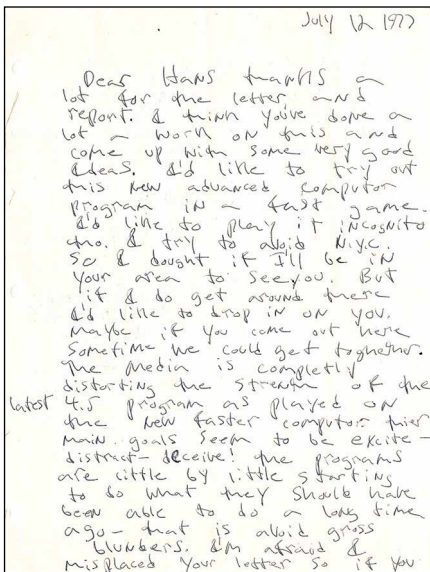 July 12 1977
Dear Hans thanks a
lot for the letter and
report. I think you've done a
lot a work on this and
come up with some very good
Ideas. I'd like to try out
this new advanced computor
program in a fast game.
I'd like to play it incognito
tho. I try to avoid N.Y.C.
So I dought if I'll be in
your area to see you. But
if I do get around there
I'd like to drop in on you.
Maybe if you come out here
Sometime we could get together.
The media is completly
distorting the strength of the
latest 4.5 program as played on
the new faster computor their
main goals seem to be excite-
distract-deceive! The programs
are little by little starting
to do what they should have
been able to do a long time
ago - that is avoid gross
blunders. I'm afraid I
misplaced your letter so if you